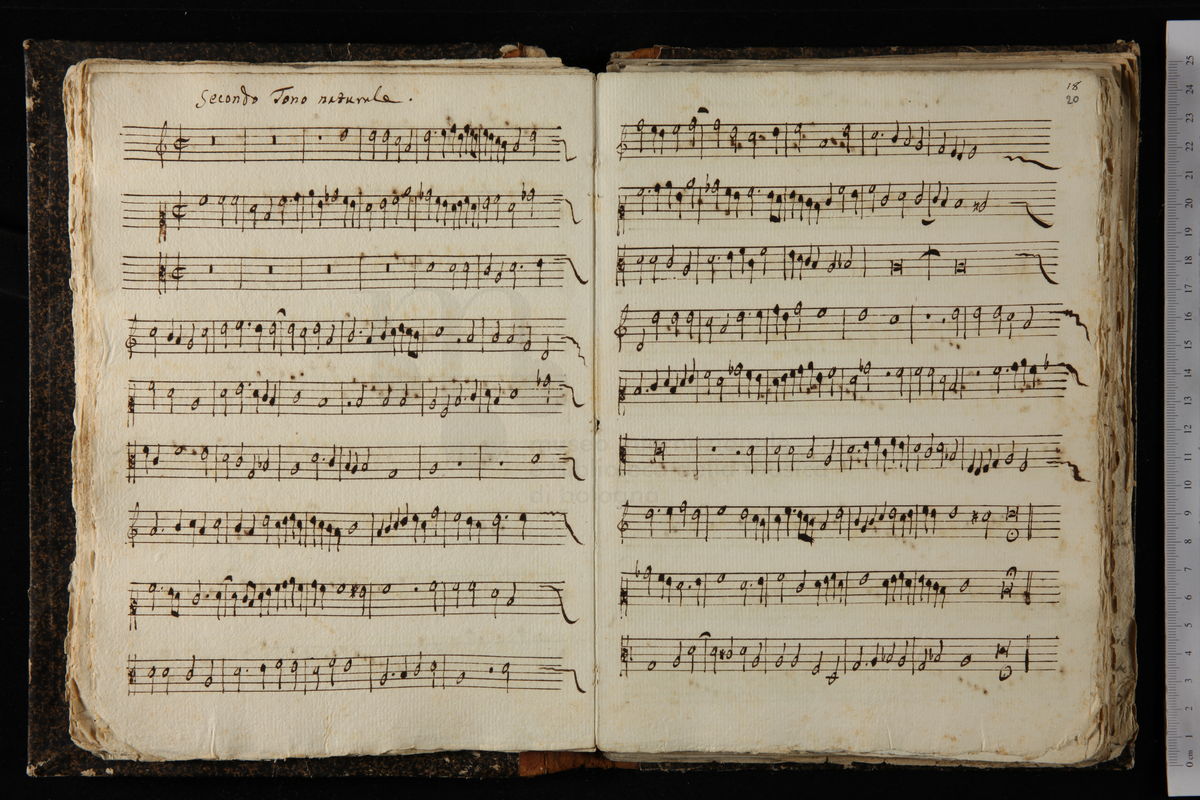 Secondo Tono naturale.
18
20
0 cm 1 2 3 4 5 6 7 8 9 10 11 12 13 14 15 16 17 18 19 20 21 22 23 24 25